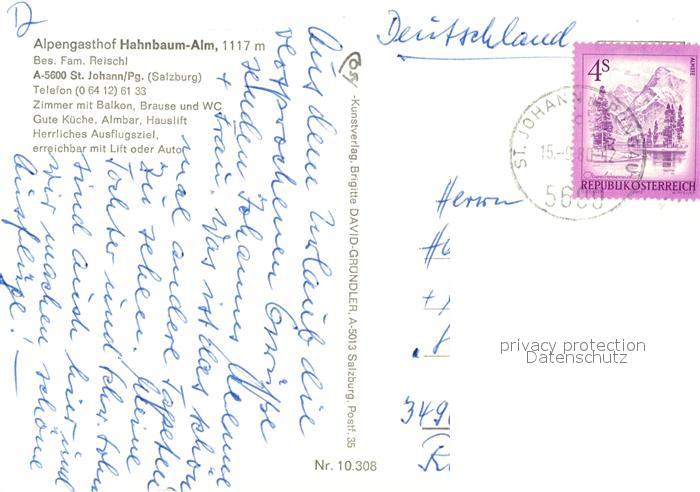 Alpengasthof Hahnbaum-Alm, 1117 m
Bes. Fam. Reischl
A-5600 St. Johann/Pg. (Salzburg)
Telefon (0 64 12) 61 33
Zimmer mit Balkon, Brause und WC
Gute Küche, Almbar, Hauslift
Herrliches Ausflugsziel,
erreichbar mit Lift oder Auto
Aus dem Urlaub die
versprochenen Grüße
senden Johannes
+ Frau. Was ist das schön
mal andere Tapeten
zu sehen. Meine
Tochter und Schw. Sohn
sind auch hier und
wir machen schöne
Ausflüge!
-Kunstverlag, Brigitte DAVID-GRÜNDLER, A-5013 Salzburg, Postf. 35
Nr. 10.308
Deutschland
4 S
ALMSEE
REPUBLIK ÖSTERREICH
ST. JOHANN IM PONGAU
15.-9.80
5600
Herrn
privacy protection
Datenschutz
349